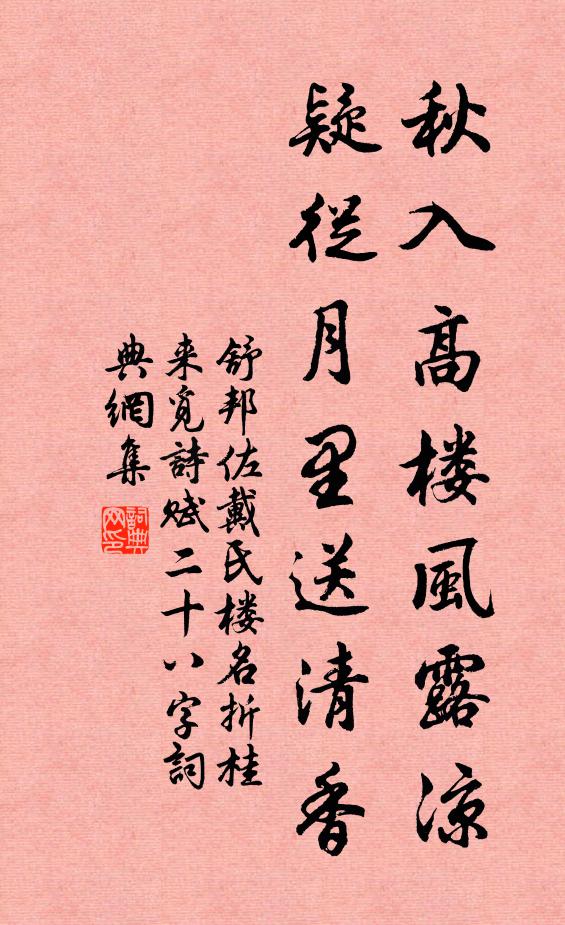 秋入高楼風露涼
疑從月里送清香
舒邦佐戴氏楼名折桂
来覓詩赋二十八字詞
典網集
詞典
网印